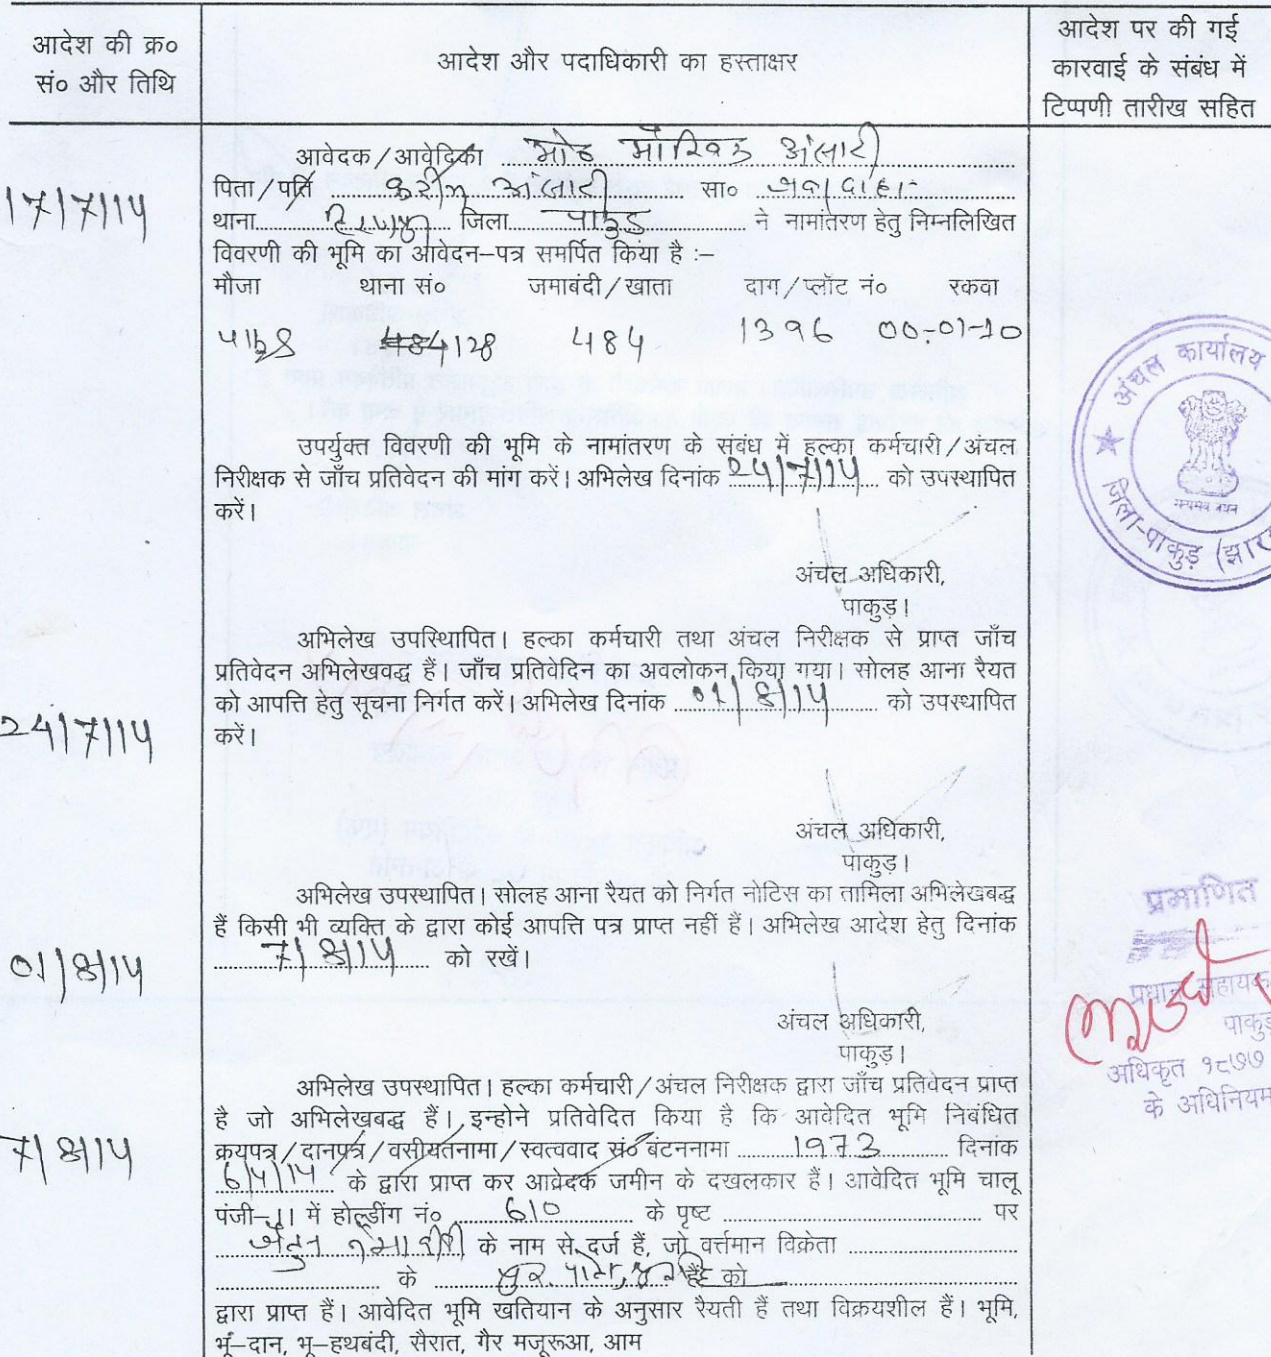 आदेश की क्र०
सं० और तिथि
आदेश और पदाधिकारी का हस्ताक्षर
आदेश पर की गई
कारवाई के संबंध में
टिप्पणी तारीख सहित
17/7/14
आवेदक/आवेदिका मोठ अंसारी
पिता/पति करीम अंसारी सा०
थाना जिला पाकुड़ ने नामांतरण हेतु निम्नलिखित
विवरणी की भूमि का आवेदन-पत्र समर्पित किया है :-
मौजा थाना सं० जमाबंदी/खाता दाग/प्लॉट नं० रकवा
पाकुड़ 128 484 1396 00-01-10
उपर्युक्त विवरणी की भूमि के नामांतरण के संबंध में हल्का कर्मचारी/अंचल
निरीक्षक से जाँच प्रतिवेदन की मांग करें। अभिलेख दिनांक 24/7/14 को उपस्थापित
करें।
अंचल अधिकारी,
पाकुड़।
24/7/14
अभिलेख उपस्थिापित। हल्का कर्मचारी तथा अंचल निरीक्षक से प्राप्त जाँच
प्रतिवेदन अभिलेखवद्ध हैं। जाँच प्रतिवेदिन का अवलोकन किया गया। सोलह आना रैयत
को आपत्ति हेतु सूचना निर्गत करें। अभिलेख दिनांक 01/8/14 को उपस्थापित
करें।
अंचल अधिकारी,
पाकुड़।
01/8/14
अभिलेख उपस्थापित। सोलह आना रैयत को निर्गत नोटिस का तामिला अभिलेखबद्ध
हैं किसी भी व्यक्ति के द्वारा कोई आपत्ति पत्र प्राप्त नहीं हैं। अभिलेख आदेश हेतु दिनांक
7/8/14 को रखें।
अंचल अधिकारी,
पाकुड़।
7/8/14
अभिलेख उपस्थापित। हल्का कर्मचारी/अंचल निरीक्षक द्वारा जाँच प्रतिवेदन प्राप्त
है जो अभिलेखबद्ध हैं। इन्होने प्रतिवेदित किया है कि आवेदित भूमि निबंधित
क्रयपत्र/दानपत्र/वसीयतनामा/स्वत्ववाद सं० बंटननामा 1973 दिनांक
6/4/14 के द्वारा प्राप्त कर आवेदक जमीन के दखलकार हैं। आवेदित भूमि चालू
पंजी-।। में होल्डींग नं० 610 के पृष्ट पर
के नाम से दर्ज हैं, जो वर्त्तमान विक्रेता
के हैं को
द्वारा प्राप्त हैं। आवेदित भूमि खतियान के अनुसार रैयती हैं तथा विक्रयशील हैं। भूमि,
भूं-दान, भू-हथबंदी, सैरात, गैर मजूरूआ, आम
अंचल कार्यालय
जिला-पाकुड़ (झार
प्रमाणित
प्रधान सहायक
पाकुड़
अधिकृत १८७७
के अधिनियम